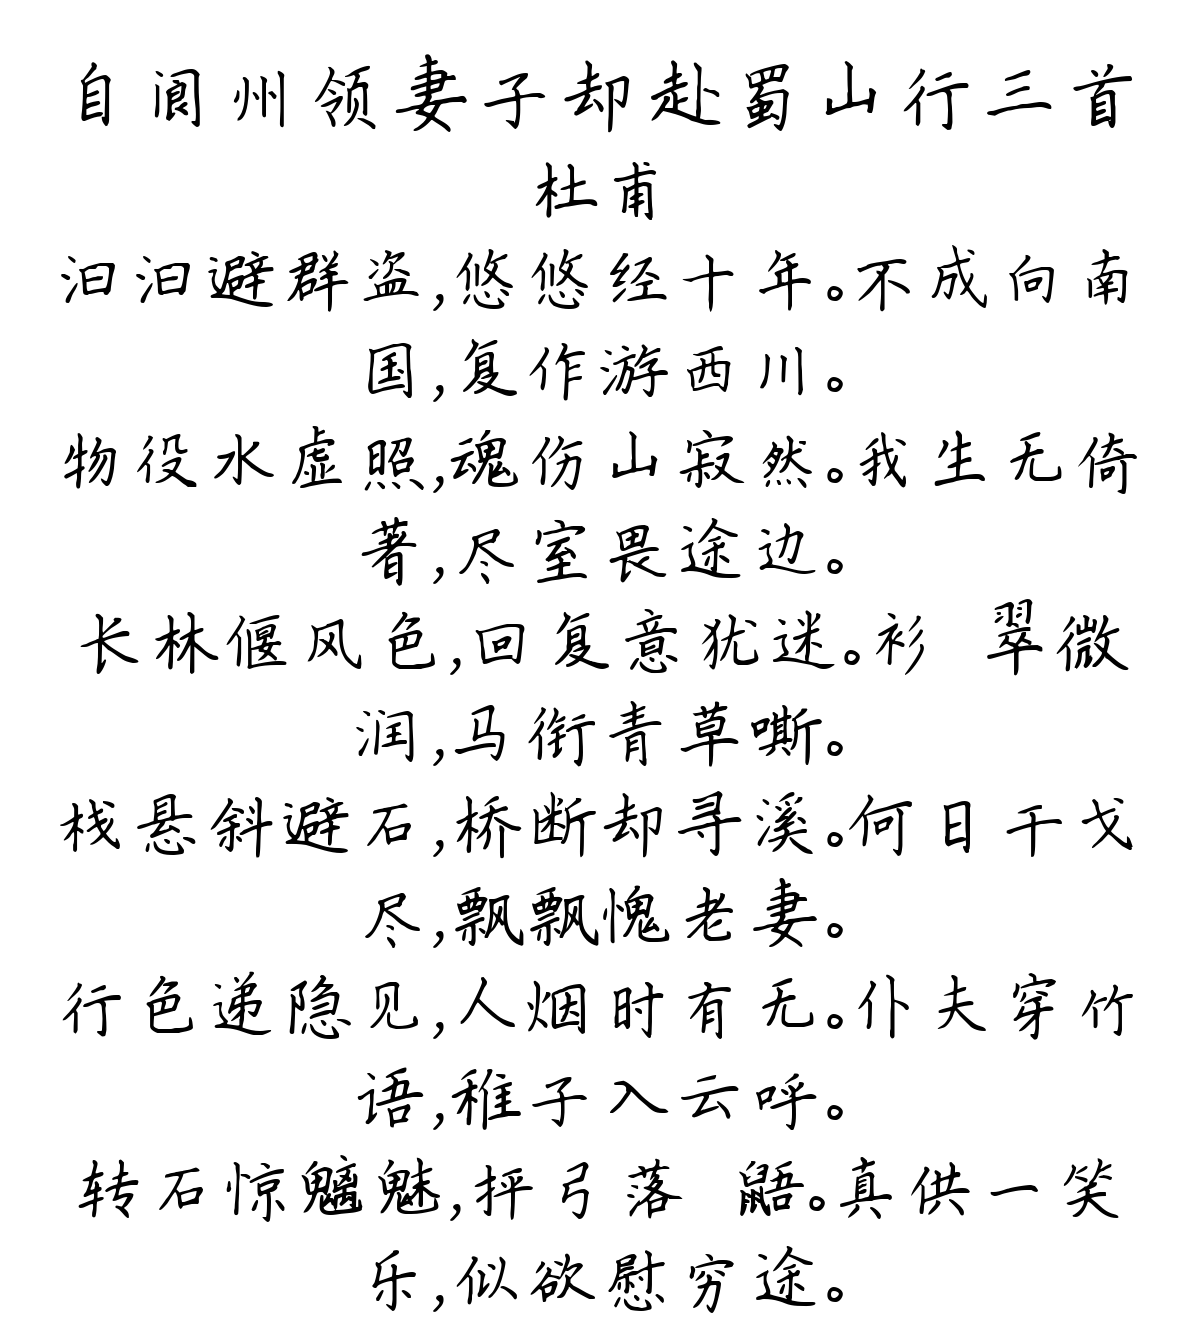 自阆州领妻子却赴蜀山行三首
杜甫
汩汩避群盗,悠悠经十年。不成向南
国,复作游西川。
物役水虚照,魂伤山寂然。我生无倚
著,尽室畏途边。
长林偃风色,回复意犹迷。衫 翠微
润,马衔青草嘶。
栈悬斜避石,桥断却寻溪。何日干戈
尽,飘飘愧老妻。
行色递隐见,人烟时有无。仆夫穿竹
语,稚子入云呼。
转石惊魑魅,抨弓落 鼯。真供一笑
乐,似欲慰穷途。